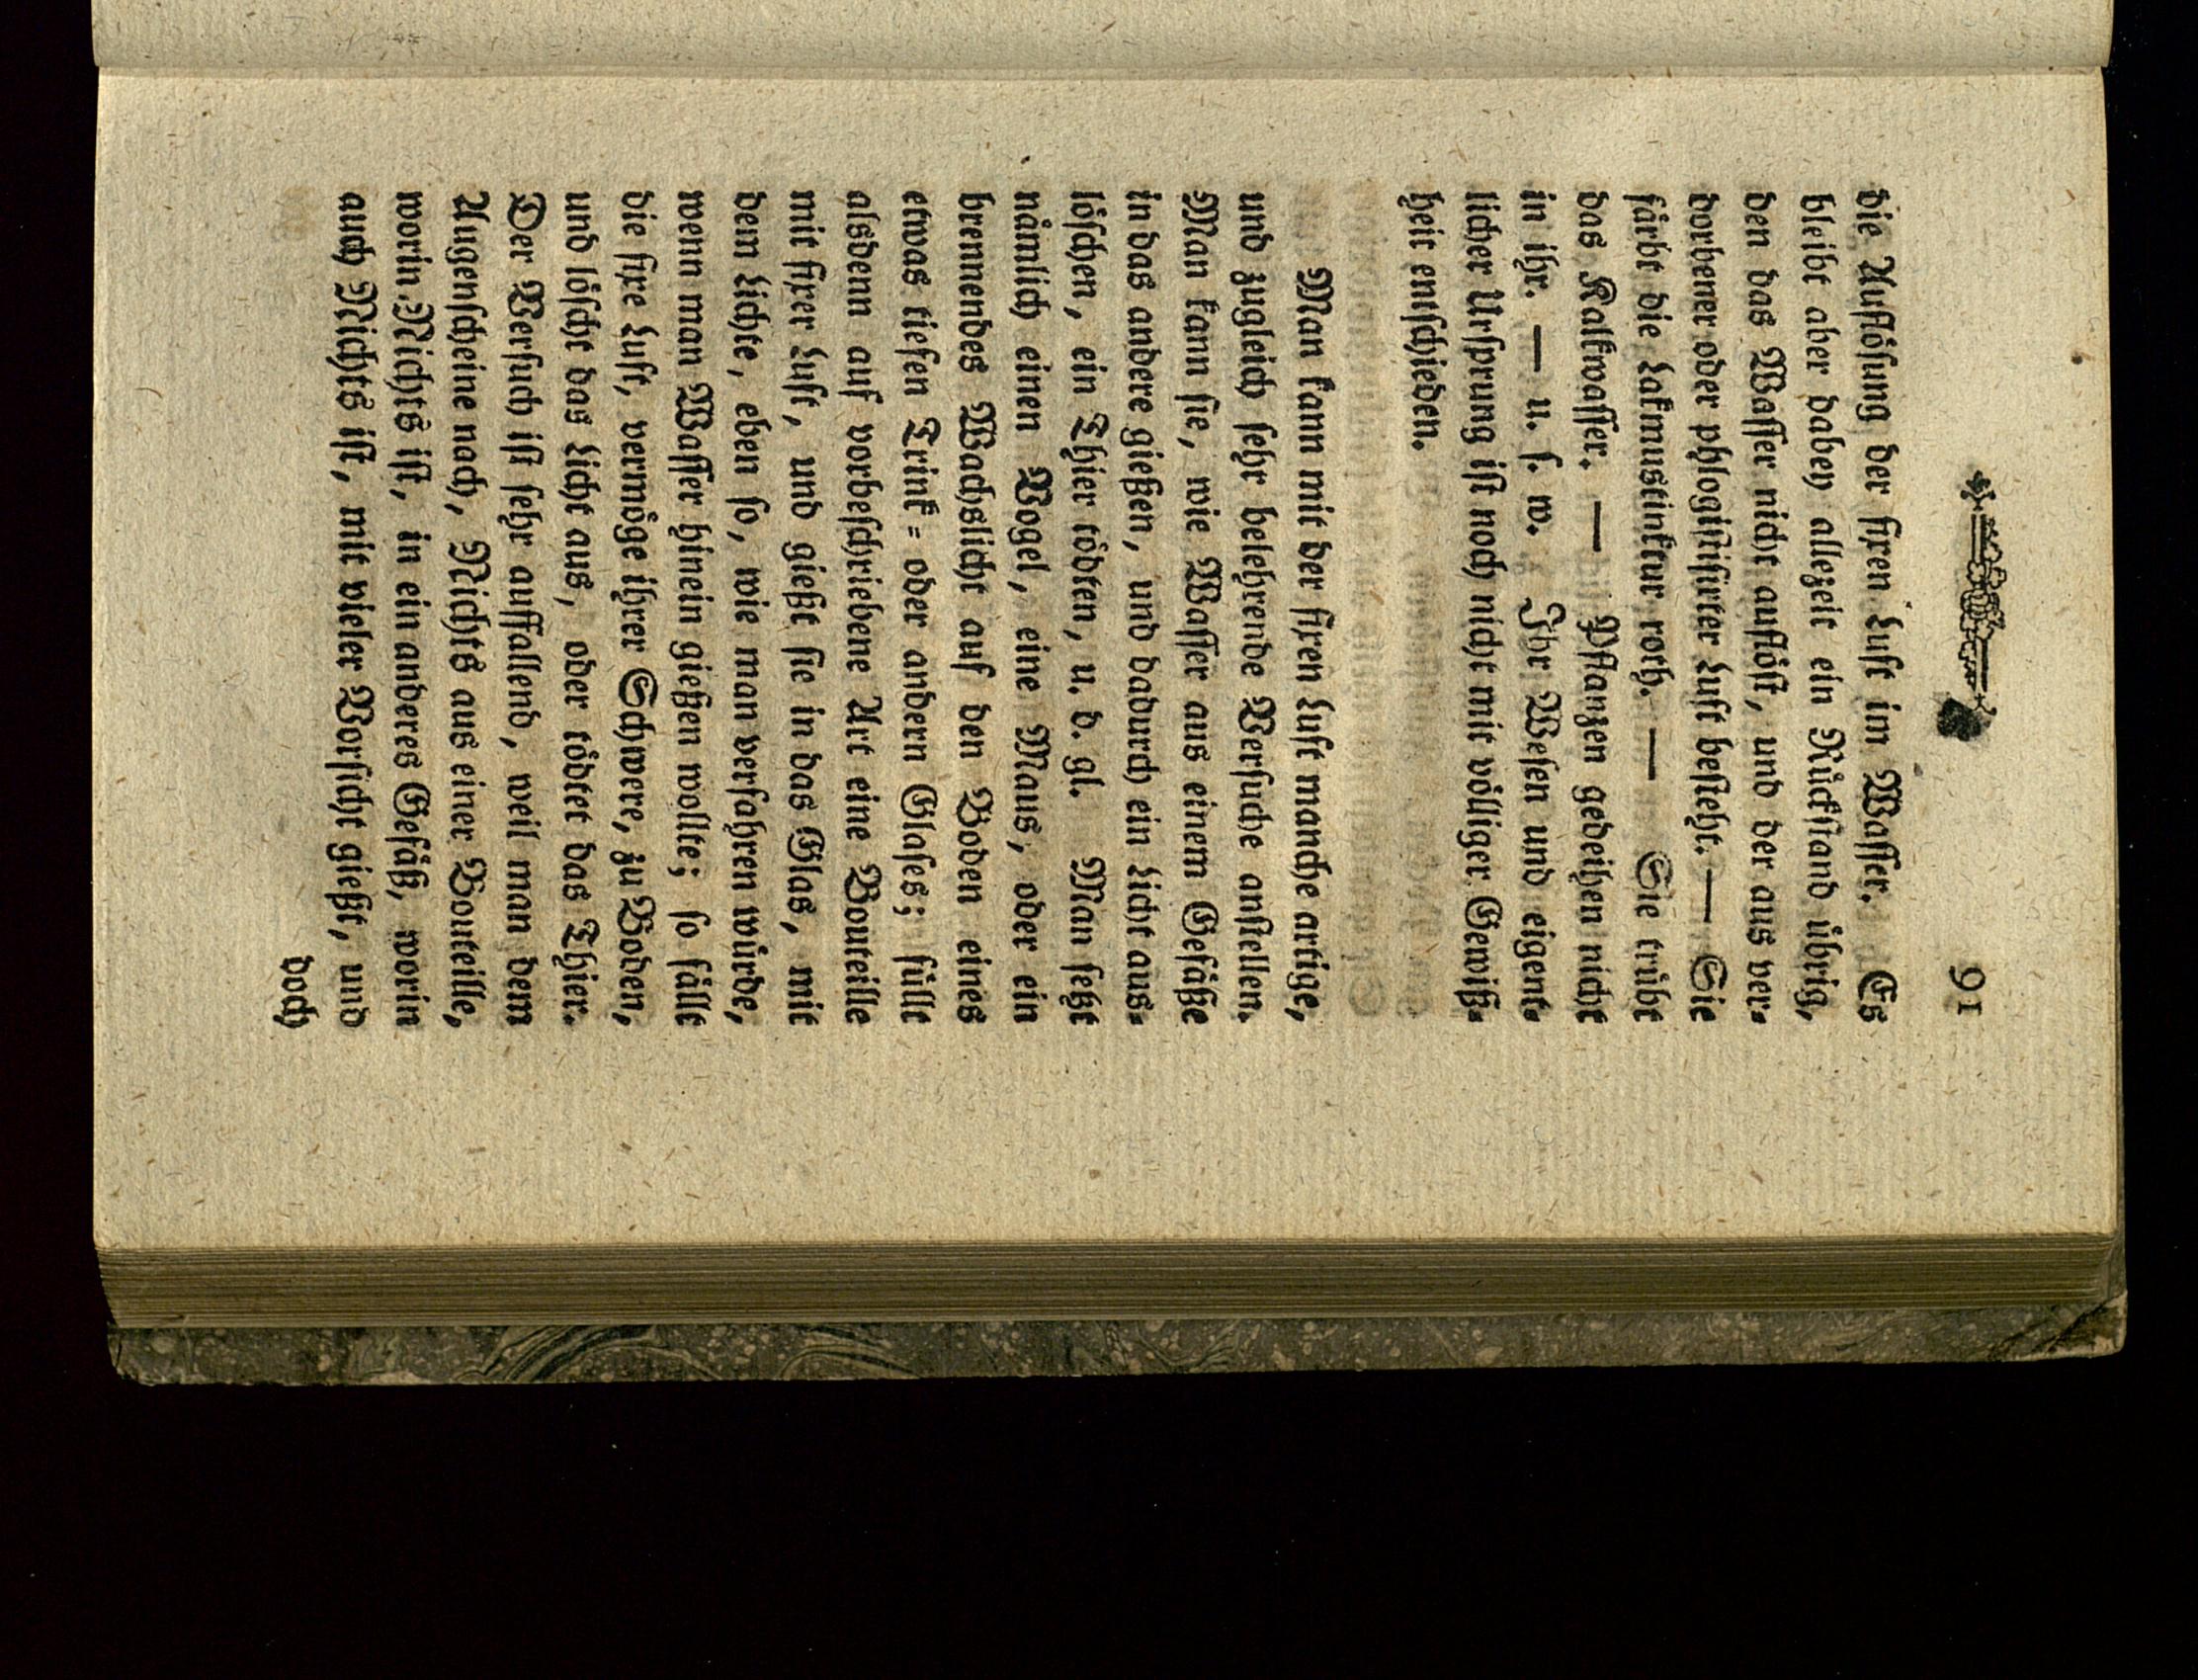 91
die Auflösung der fixen Luft im Wasser. Es
bleibt aber dabey allezeit ein Rückstand übrig,
den das Wasser nicht auflöst, und der aus ver-
dorbener oder phlogistisirter Luft besteht. — Sie
färbt die Lakmustinktur roth. — Sie trübt
das Kalkwasser. — Pflanzen gedeihen nicht
in ihr. — u. s. w. Ihr Wesen und eigent-
licher Ursprung ist noch nicht mit völliger Gewiß-
heit entschieden.
Man kann mit der fixen Luft manche artige,
und zugleich sehr belehrende Versuche anstellen.
Man kann sie, wie Wasser aus einem Gefäße
in das andere gießen, und dadurch ein Licht aus-
löschen, ein Thier tödten, u. d. gl. Man setzt
nämlich einen Vogel, eine Maus, oder ein
brennendes Wachslicht auf den Boden eines
etwas tiefen Trink- oder andern Glases; füllt
alsdenn auf vorbeschriebene Art eine Bouteille
mit fixer Luft, und gießt sie in das Glas, mit
dem Lichte, eben so, wie man verfahren würde,
wenn man Wasser hinein gießen wollte; so fällt
die fixe Luft, vermöge ihrer Schwere, zu Boden,
und löscht das Licht aus, oder tödtet das Thier.
Der Versuch ist sehr auffallend, weil man dem
Augenscheine nach, Nichts aus einer Bouteille,
worin Nichts ist, in ein anderes Gefäß, worin
auch Nichts ist, mit vieler Vorsicht gießt, und
doch